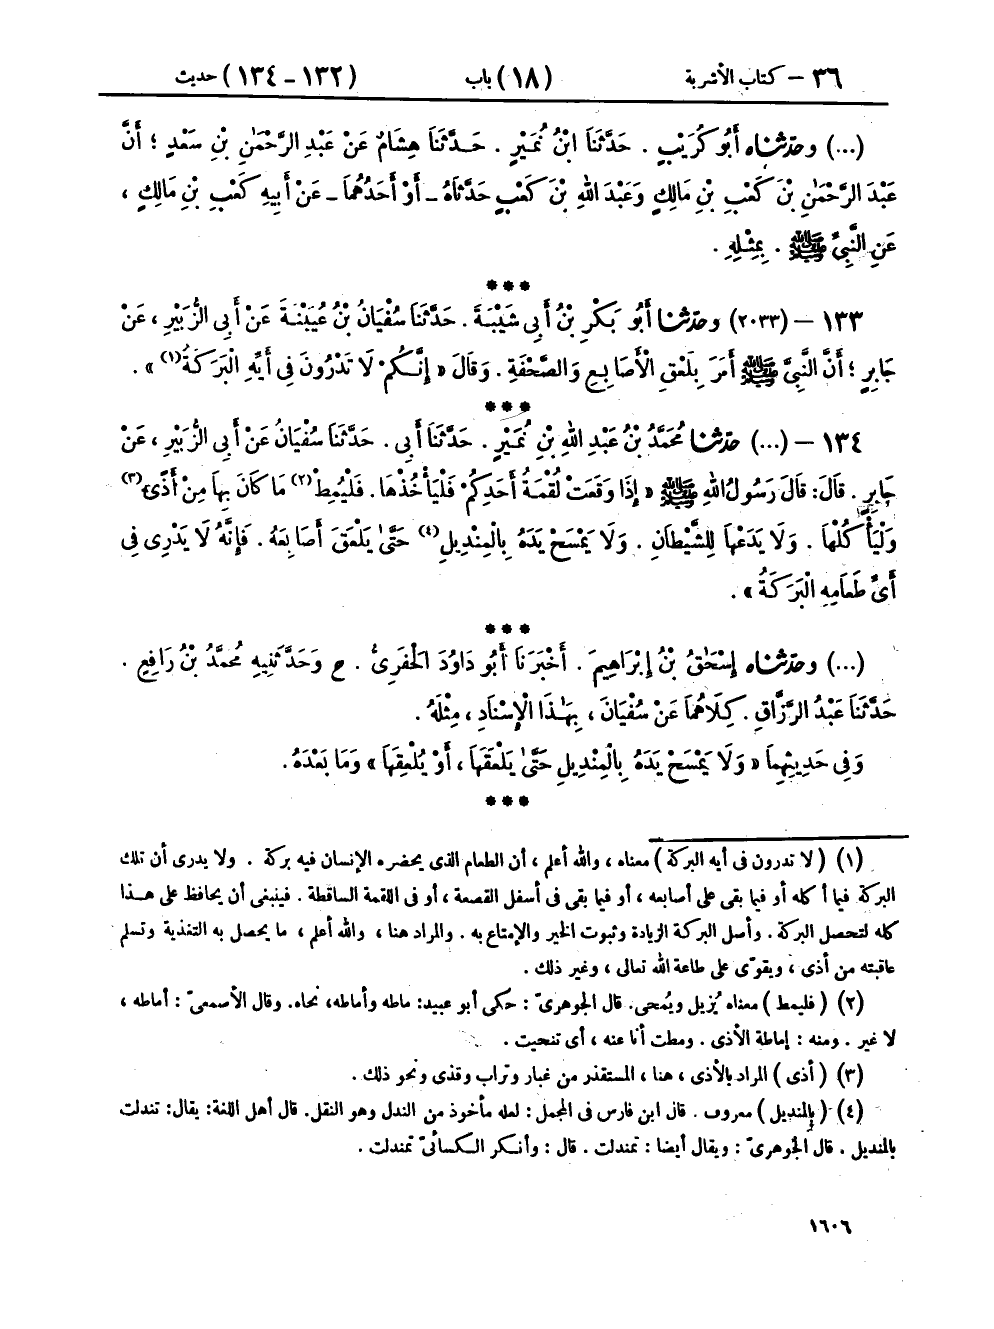 ٣٦ – كتاب الأشربة (١٨) باب (١٣٢ – ١٣٤) حديث
(...) وحَدَّثَنَاه أَبُو كُرَيْبٍ . حَدَّثَنَا ابْنُ نُمَيْرٍ . حَدَّثَنَا هِشَامٌ عَنْ عَبْدِ الرَّحْمٰنِ بْنِ سَعْدٍ ؛ أَنَّ
عَبْدَ الرَّحْمٰنِ بْنَ كَعْبِ بْنِ مَالِكٍ وَعَبْدَ اللهِ بْنَ كَعْبٍ حَدَّثَاهُ ـ أَوْ أَحَدُهُمَا ـ عَنْ أَبِيهِ كَعْبِ بْنِ مَالِكٍ ،
عَنِ النَّبِىِّ ﷺ . بِمِثْلِهِ .
***
١٣٣ – (٢٠٣٣) وحَدَّثَنَا أَبُو بَكْرِ بْنُ أَبِى شَيْبَةَ . حَدَّثَنَا سُفْيَانُ بْنُ عُيَيْنَةَ عَنْ أَبِى الزُّبَيْرِ ، عَنْ
جَابِرٍ ؛ أَنَّ النَّبِىَّ ﷺ أَمَرَ بِلَعْقِ الْأَصَابِعِ وَالصَّحْفَةِ . وَقَالَ « إِنَّكُمْ لَا تَدْرُونَ فِى أَيِّهِ الْبَرَكَةُ(١) » .
***
١٣٤ – (...) حَدَّثَنَا مُحَمَّدُ بْنُ عَبْدِ اللهِ بْنِ نُمَيْرٍ . حَدَّثَنَا أَبِى . حَدَّثَنَا سُفْيَانُ عَنْ أَبِى الزُّبَيْرِ ، عَنْ
جَابِرٍ . قَالَ : قَالَ رَسُولُ اللهِ ﷺ « إِذَا وَقَعَتْ لُقْمَةُ أَحَدِكُمْ فَلْيَأْخُذْهَا . فَلْيُمِطْ(٢) مَا كَانَ بِهَا مِنْ أَذًى(٣)
وَلْيَأْكُلْهَا . وَلَا يَدَعْهَا لِلشَّيْطَانِ . وَلَا يَمْسَحْ يَدَهُ بِالْمِنْدِيلِ(٤) حَتَّىٰ يَلْعَقَ أَصَابِعَهُ . فَإِنَّهُ لَا يَدْرِى فِى
أَىِّ طَعَامِهِ الْبَرَكَةُ » .
***
(...) وحَدَّثَنَاه إِسْحٰقُ بْنُ إِبْرَاهِيمَ . أَخْبَرَنَا أَبُو دَاوُدَ الْحَفَرِىُّ . ح وَحَدَّثَنِيهِ مُحَمَّدُ بْنُ رَافِعٍ .
حَدَّثَنَا عَبْدُ الرَّزَّاقِ . كِلَاهُمَا عَنْ سُفْيَانَ ، بِهٰذَا الْإِسْنَادِ ، مِثْلَهُ .
وَفِى حَدِيثِهِمَا « وَلَا يَمْسَحْ يَدَهُ بِالْمِنْدِيلِ حَتَّىٰ يَلْعَقَهَا ، أَوْ يُلْعِقَهَا » وَمَا بَعْدَهُ .
***
(١) ( لا تدرون فى أيه البركة ) معناه ، والله أعلم ، أن الطعام الذى يحضره الإنسان فيه بركة . ولا يدرى أن تلك
البركة فيما أكله أو فيما بقى على أصابعه ، أو فيما بقى فى أسفل القصعة ، أو فى اللقمة الساقطة . فينبغى أن يحافظ على هذا
كله لتحصل البركة . وأصل البركة الزيادة وثبوت الخير والإمتاع به . والمراد هنا ، والله أعلم ، ما يحصل به التغذية وتسلم
عاقبته من أذى ، ويقوّى على طاعة الله تعالى ، وغير ذلك .
(٢) ( فليمط ) معناه يُزيل ويُمحى . قال الجوهرىّ : حكى أبو عبيد : ماطه وأماطه، نحاه. وقال الأصمعىّ : أماطه ،
لا غير . ومنه : إماطة الأذى . ومطت أنا عنه ، أى تنحيت .
(٣) ( أذى ) المراد بالأذى ، هنا ، المستقذر من غبار وتراب وقذى ونحو ذلك .
(٤) ( بالمنديل ) معروف . قال ابن فارس فى المجمل : لعله مأخوذ من الندل وهو النقل. قال أهل اللغة: يقال: تندلت
بالمنديل . قال الجوهرىّ : ويقال أيضا : تمندلت . قال : وأنكر الكسائىّ تمندلت .
١٦٠٦